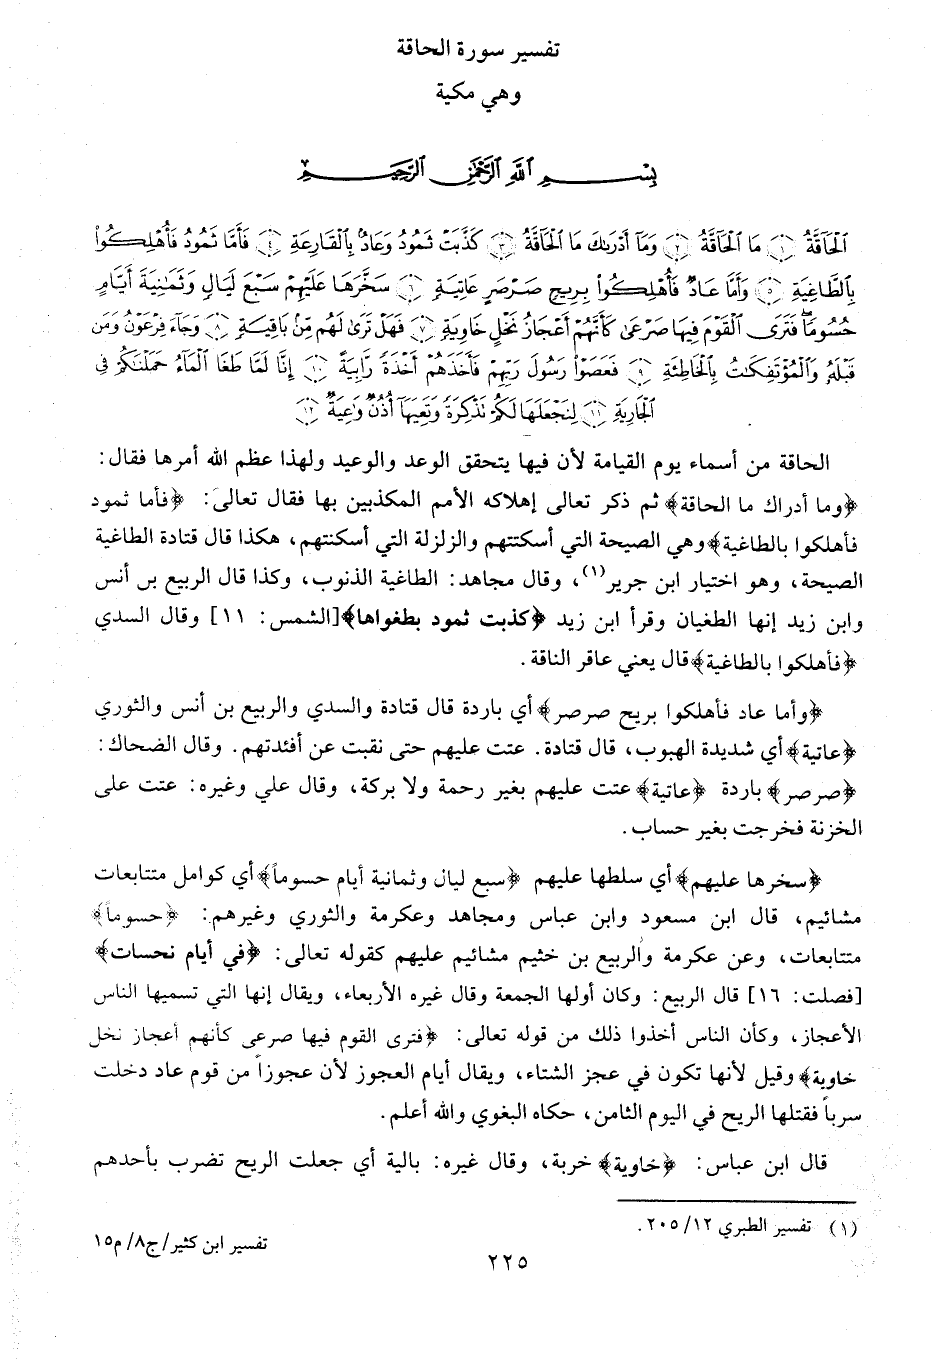 تفسير سورة الحاقة
وهي مكية
بِسْمِ اللَّهِ الرَّحْمَٰنِ الرَّحِيمِ
الْحَاقَّةُ ﴿١﴾ مَا الْحَاقَّةُ ﴿٢﴾ وَمَا أَدْرَىٰكَ مَا الْحَاقَّةُ ﴿٣﴾ كَذَّبَتْ ثَمُودُ وَعَادٌ بِالْقَارِعَةِ ﴿٤﴾ فَأَمَّا ثَمُودُ فَأُهْلِكُوا۟
بِالطَّاغِيَةِ ﴿٥﴾ وَأَمَّا عَادٌ فَأُهْلِكُوا۟ بِرِيحٍ صَرْصَرٍ عَاتِيَةٍ ﴿٦﴾ سَخَّرَهَا عَلَيْهِمْ سَبْعَ لَيَالٍ وَثَمَٰنِيَةَ أَيَّامٍ
حُسُومًا فَتَرَى الْقَوْمَ فِيهَا صَرْعَىٰ كَأَنَّهُمْ أَعْجَازُ نَخْلٍ خَاوِيَةٍ ﴿٧﴾ فَهَلْ تَرَىٰ لَهُم مِّنۢ بَاقِيَةٍ ﴿٨﴾ وَجَآءَ فِرْعَوْنُ وَمَن
قَبْلَهُۥ وَالْمُؤْتَفِكَٰتُ بِالْخَاطِئَةِ ﴿٩﴾ فَعَصَوْا۟ رَسُولَ رَبِّهِمْ فَأَخَذَهُمْ أَخْذَةً رَّابِيَةً ﴿١٠﴾ إِنَّا لَمَّا طَغَا الْمَآءُ حَمَلْنَٰكُمْ فِى
الْجَارِيَةِ ﴿١١﴾ لِنَجْعَلَهَا لَكُمْ تَذْكِرَةً وَتَعِيَهَآ أُذُنٌ وَٰعِيَةٌ ﴿١٢﴾
الحاقة من أسماء يوم القيامة لأن فيها يتحقق الوعد والوعيد ولهذا عظم الله أمرها فقال:
﴿وما أدراك ما الحاقة﴾ ثم ذكر تعالى إهلاكه الأمم المكذبين بها فقال تعالى: ﴿فأما ثمود
فأهلكوا بالطاغية﴾ وهي الصيحة التي أسكتتهم والزلزلة التي أسكنتهم، هكذا قال قتادة الطاغية
الصيحة، وهو اختيار ابن جرير(١)، وقال مجاهد: الطاغية الذنوب، وكذا قال الربيع بن أنس
وابن زيد إنها الطغيان وقرأ ابن زيد ﴿كذبت ثمود بطغواها﴾ [الشمس: ١١] وقال السدي
﴿فأهلكوا بالطاغية﴾ قال يعني عاقر الناقة.
﴿وأما عاد فأهلكوا بريح صرصر﴾ أي باردة قال قتادة والسدي والربيع بن أنس والثوري
﴿عاتية﴾ أي شديدة الهبوب، قال قتادة. عتت عليهم حتى نقبت عن أفئدتهم. وقال الضحاك:
﴿صرصر﴾ باردة ﴿عاتية﴾ عتت عليهم بغير رحمة ولا بركة، وقال علي وغيره: عتت على
الخزنة فخرجت بغير حساب.
﴿سخرها عليهم﴾ أي سلطها عليهم ﴿سبع ليال وثمانية أيام حسوماً﴾ أي كوامل متتابعات
مشائيم، قال ابن مسعود وابن عباس ومجاهد وعكرمة والثوري وغيرهم: ﴿حسوماً﴾
متتابعات، وعن عكرمة والربيع بن خثيم مشائيم عليهم كقوله تعالى: ﴿في أيام نحسات﴾
[فصلت: ١٦] قال الربيع: وكان أولها الجمعة وقال غيره الأربعاء، ويقال إنها التي تسميها الناس
الأعجاز، وكأن الناس أخذوا ذلك من قوله تعالى: ﴿فترى القوم فيها صرعى كأنهم أعجاز نخل
خاوية﴾ وقيل لأنها تكون في عجز الشتاء، ويقال أيام العجوز لأن عجوزاً من قوم عاد دخلت
سرباً فقتلها الريح في اليوم الثامن، حكاه البغوي والله أعلم.
قال ابن عباس: ﴿خاوية﴾ خربة، وقال غيره: بالية أي جعلت الريح تضرب بأحدهم
(١) تفسير الطبري ١٢/ ٢٠٥.
تفسير ابن كثير/ج٨/ م١٥
٢٢٥